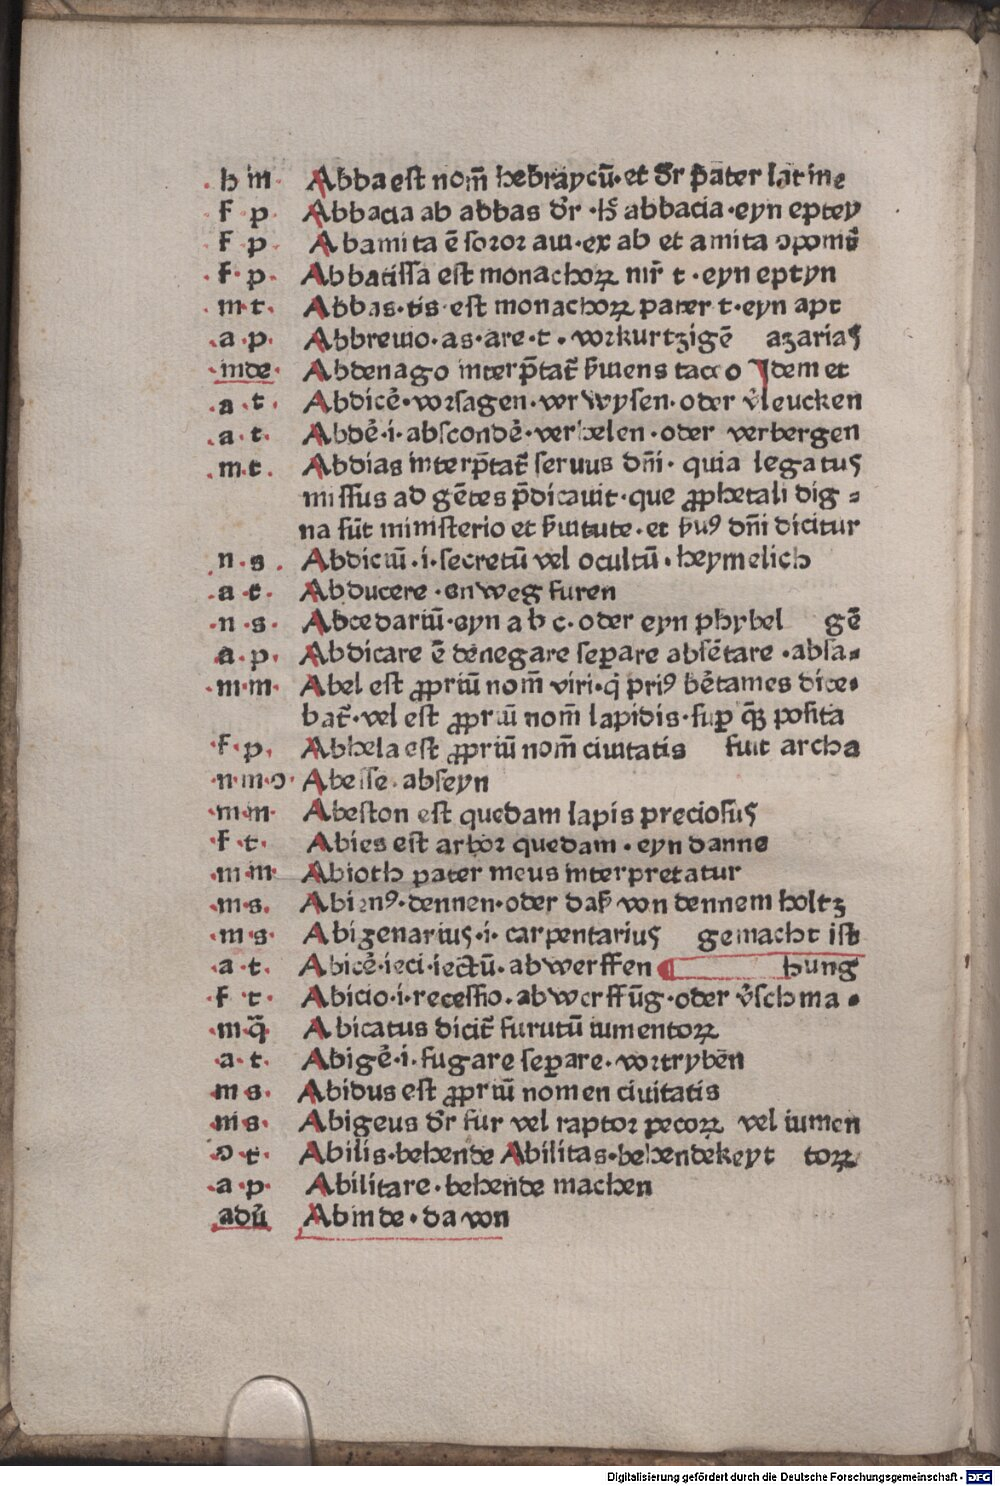 .h m. Abba est nom̄ hebraycū·et dr̄ pater latine
.f p. Abbacia ab abbas dr̄·hꝭ abbacia·eyn eptey
.f p. Abamita ē soror aui·ex ab et amita ↄpomꝭ
.f·p. Abbatissa est monachoꝝ mr̄ t·eyn eptyn
.m·t. Abbas·tis·est monachoꝝ pater t·eyn apt
.a·p. Abbreuio·as·are·t·vorkurtzigē azarias
.inde. Abdenago interp̄tat̄ s̄uiens tacco Idem et
.a·t. Abdicē·vorsagen·verwysen·oder v̄leucken
.a·t. Abdē·i·abscondē·verhelen·oder verbergen
.m·t. Abdias interp̄tat̄ seruus dn̄i·quia legatus
missus ad gētes p̄dicauit·que ꝓphetali dig-
na sūt ministerio et s̄uitute·et s̄uꝰ dn̄i dicitur
.n·s. Abdicuū·i·secretū vel ocultū·heymelich
.a·t. Abducere·enweg furen
.n·s. Abcedariū·eyn a b c·oder eyn phybel gē
.a·p. Abdicare ē denegare seꝑare absētare·absa-
.m·m. Abel est ꝓpriū nom̄ viri·q̄ priꝰ bētames dice-
bat̄·vel est ꝓpriū nom̄ lapidis·suꝑ q̄ꝫ posita
.f·p. Abhela est ꝓpriū nom̄ ciuitatis fuit archa
.n·m·o· Abesse·abseyn
.m·m. Abeston est quedam lapis preciosus
.f·t. Abies est arbor quedam·eyn danne
.m m. Abioth pater meus interpretatur
.m·s. Abignꝰ·dennen·oder daß von dennem holtz
.m·s. Abigenarius·i·carpentarius gemacht ist
.a·t. Abicē·ieci·iectū·abwerffen hung
.f t. Abicio·i·recessio·abwerffūg·oder v̄schma-
.m·q̄. Abicatus dicit̄ furutū iumentoꝝ
.a·t. Abigē·i·fugare seꝑare·vortrybēn
.m s. Abidus est ꝓpriū nomen ciuitatis
.m·s. Abigeus dr̄ fur vel raptor pecoꝝ vel iumen
.o·t. Abilis·behende Abilitas·behendekeyt toꝝ
.a·p. Abilitare·behende machen
adū Abinde·da von
Digitalisierung gefördert durch die Deutsche Forschungsgemeinschaft - DFG